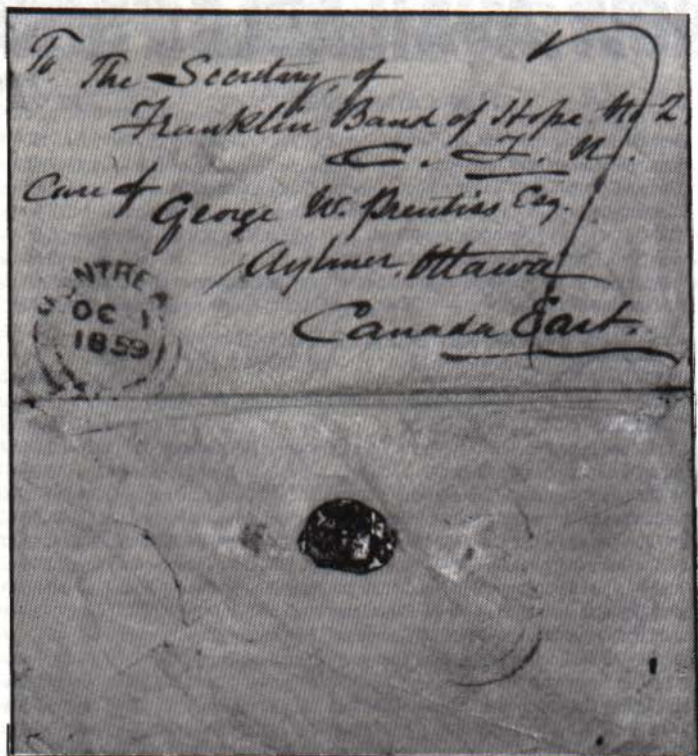 To The Secretary of
Franklin Band of Hope No 2
C. F. N.
Care of George W. Prentiss Esq.
Aylmer, Ottawa
Canada East.
MONTREA
OC 1
1859